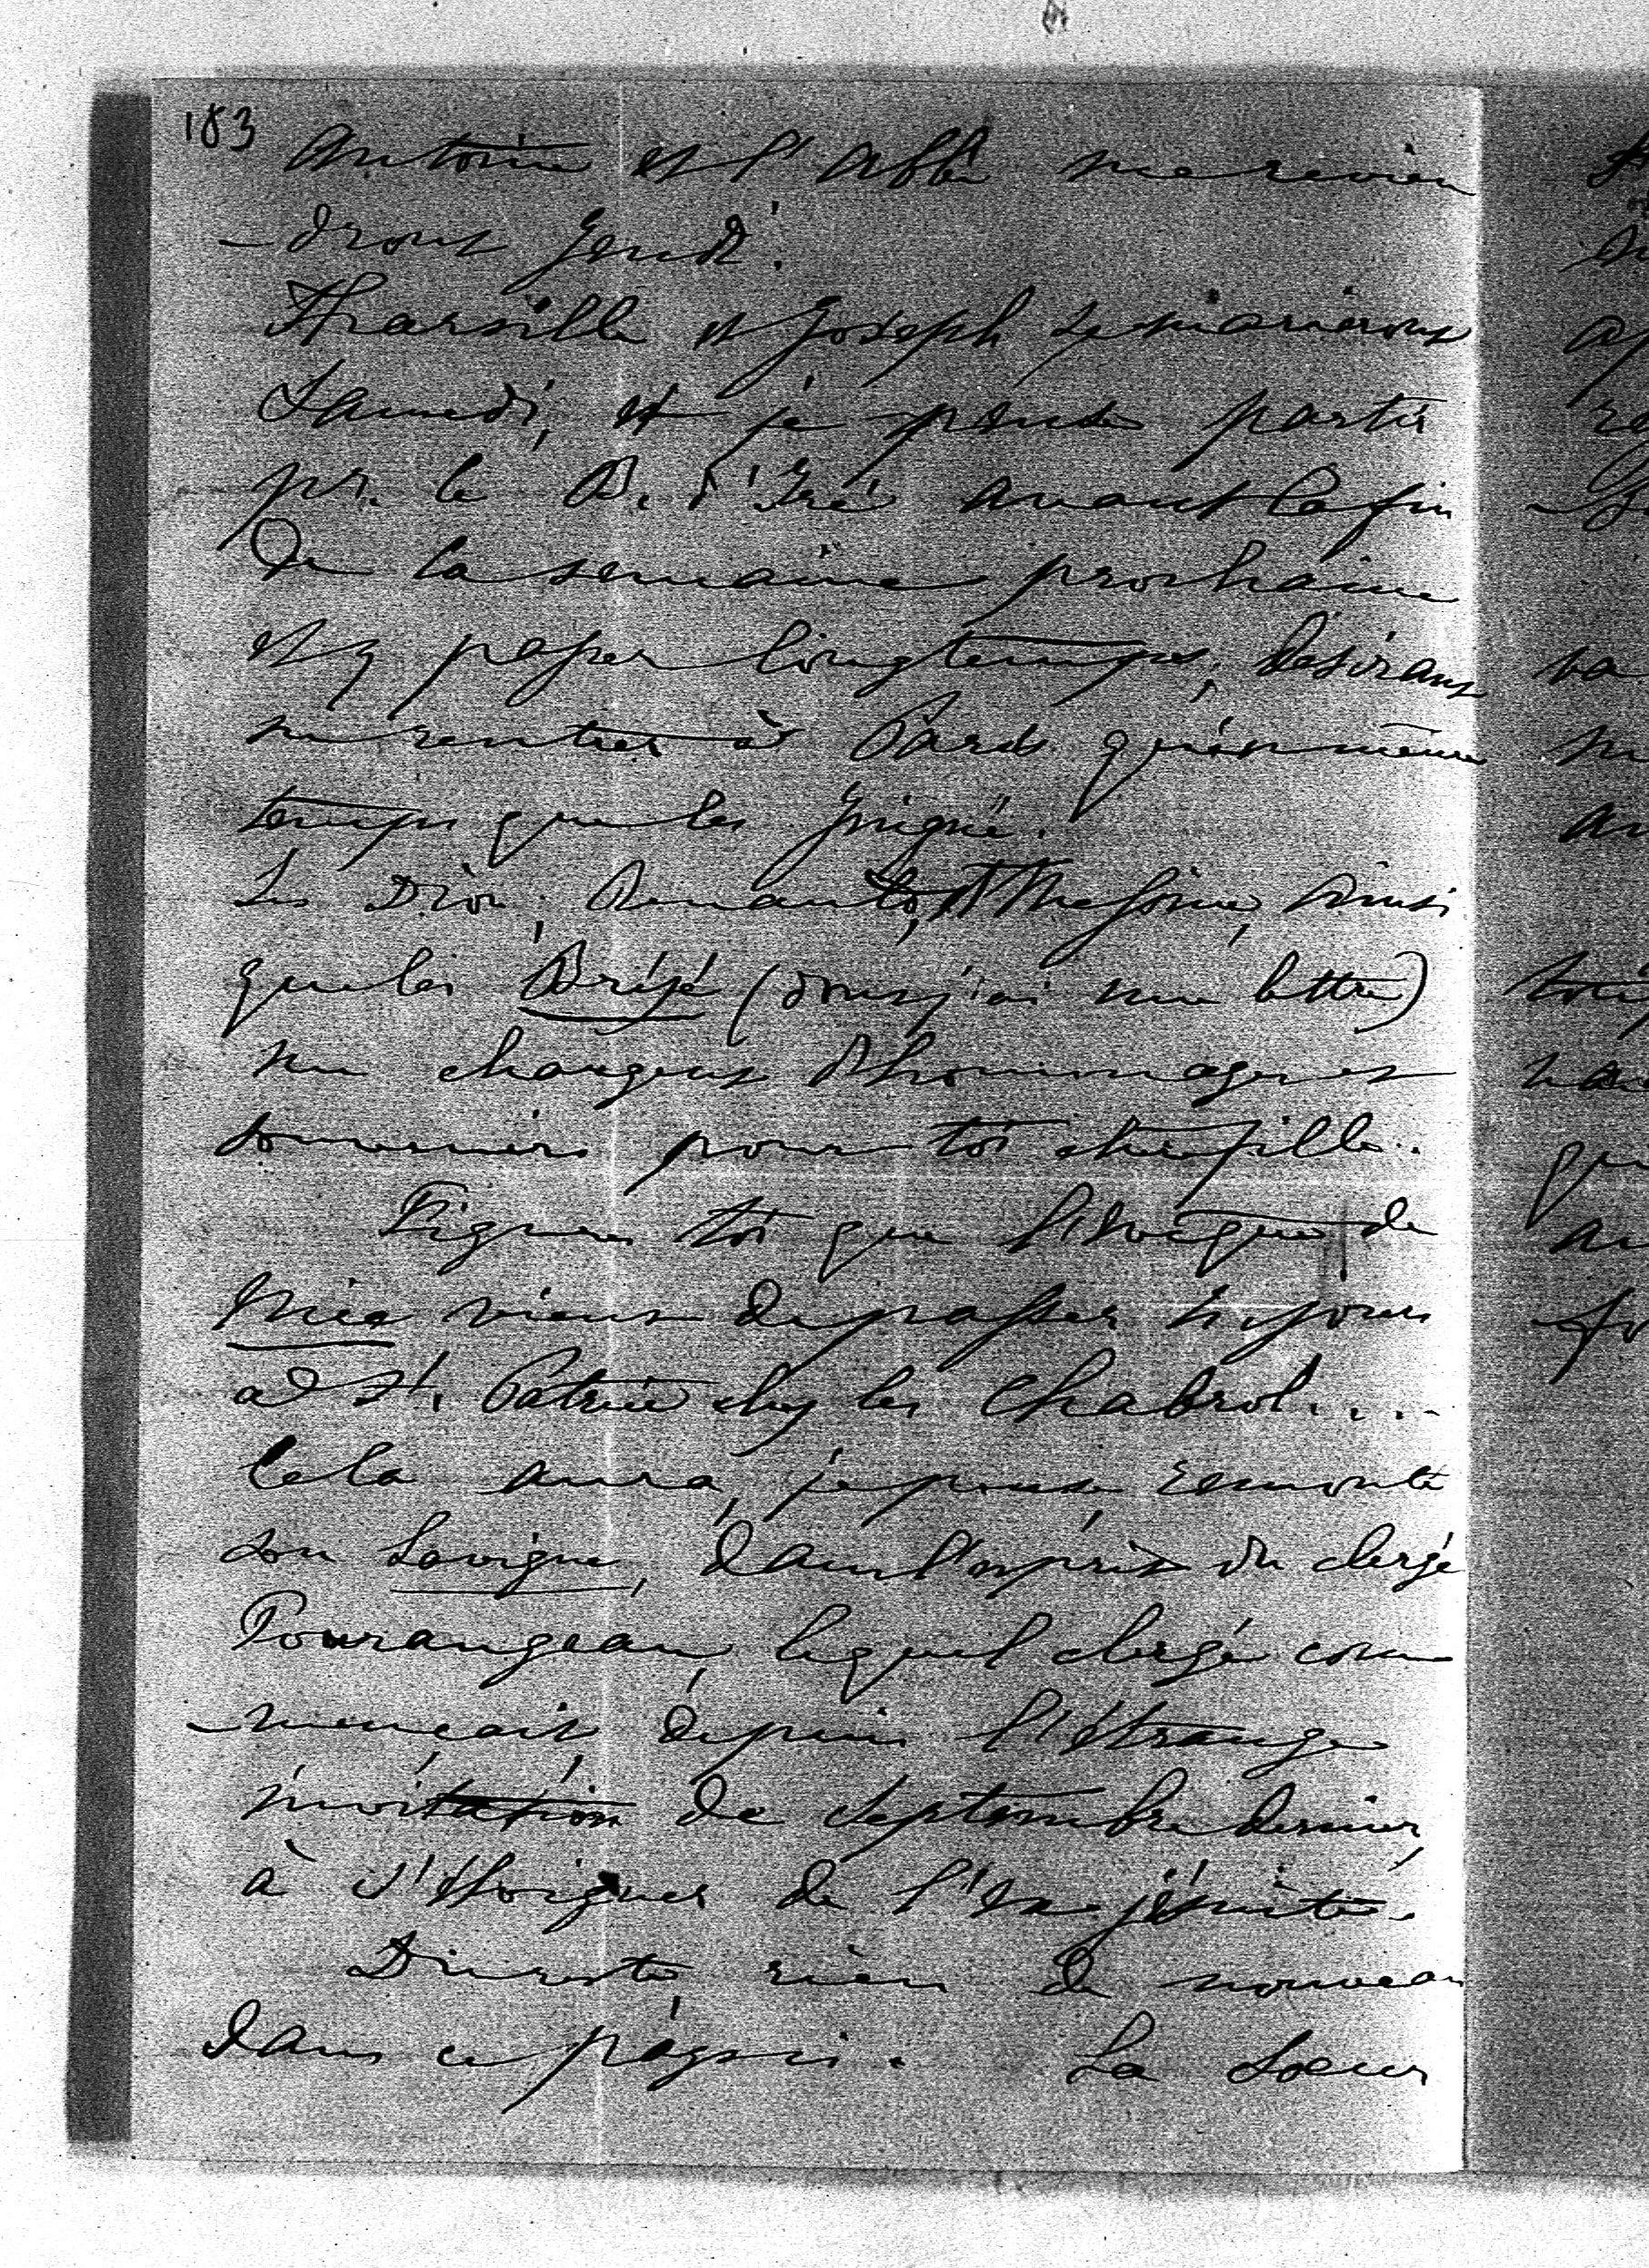 183
Antoine et l'abbé me revien
-dront jeudi.
Tharsille et Joseph se marieront
Samedi, et je pense partir
pr. le B. d'Iré avant la fin
De la semaine prochaine
et y passer longtemps, désirant
ne rentrer à Paris qu'en même
temps que les Juigné.
Les Dion, Menault, Messine, ainsi
que les Brézé (dont j'ai une lettre)
me chargent d'hommages et
souvenirs pour toi chère fille.
Figures toi que l'évêque de
Nice vient de passer h. jours
à St. Patrice chez les Chabrol....
Cela aura, je pense, remonté
son Savigne, dans l'esprit du clergé
Tourangeau, lequel clergé com
-mençait, depuis l'étrange
invitation de Septembre dernier,
à s'éloigner de l'ex jésuite.
Du reste, rien de nouveau
dans ce pays ci. La Soeur